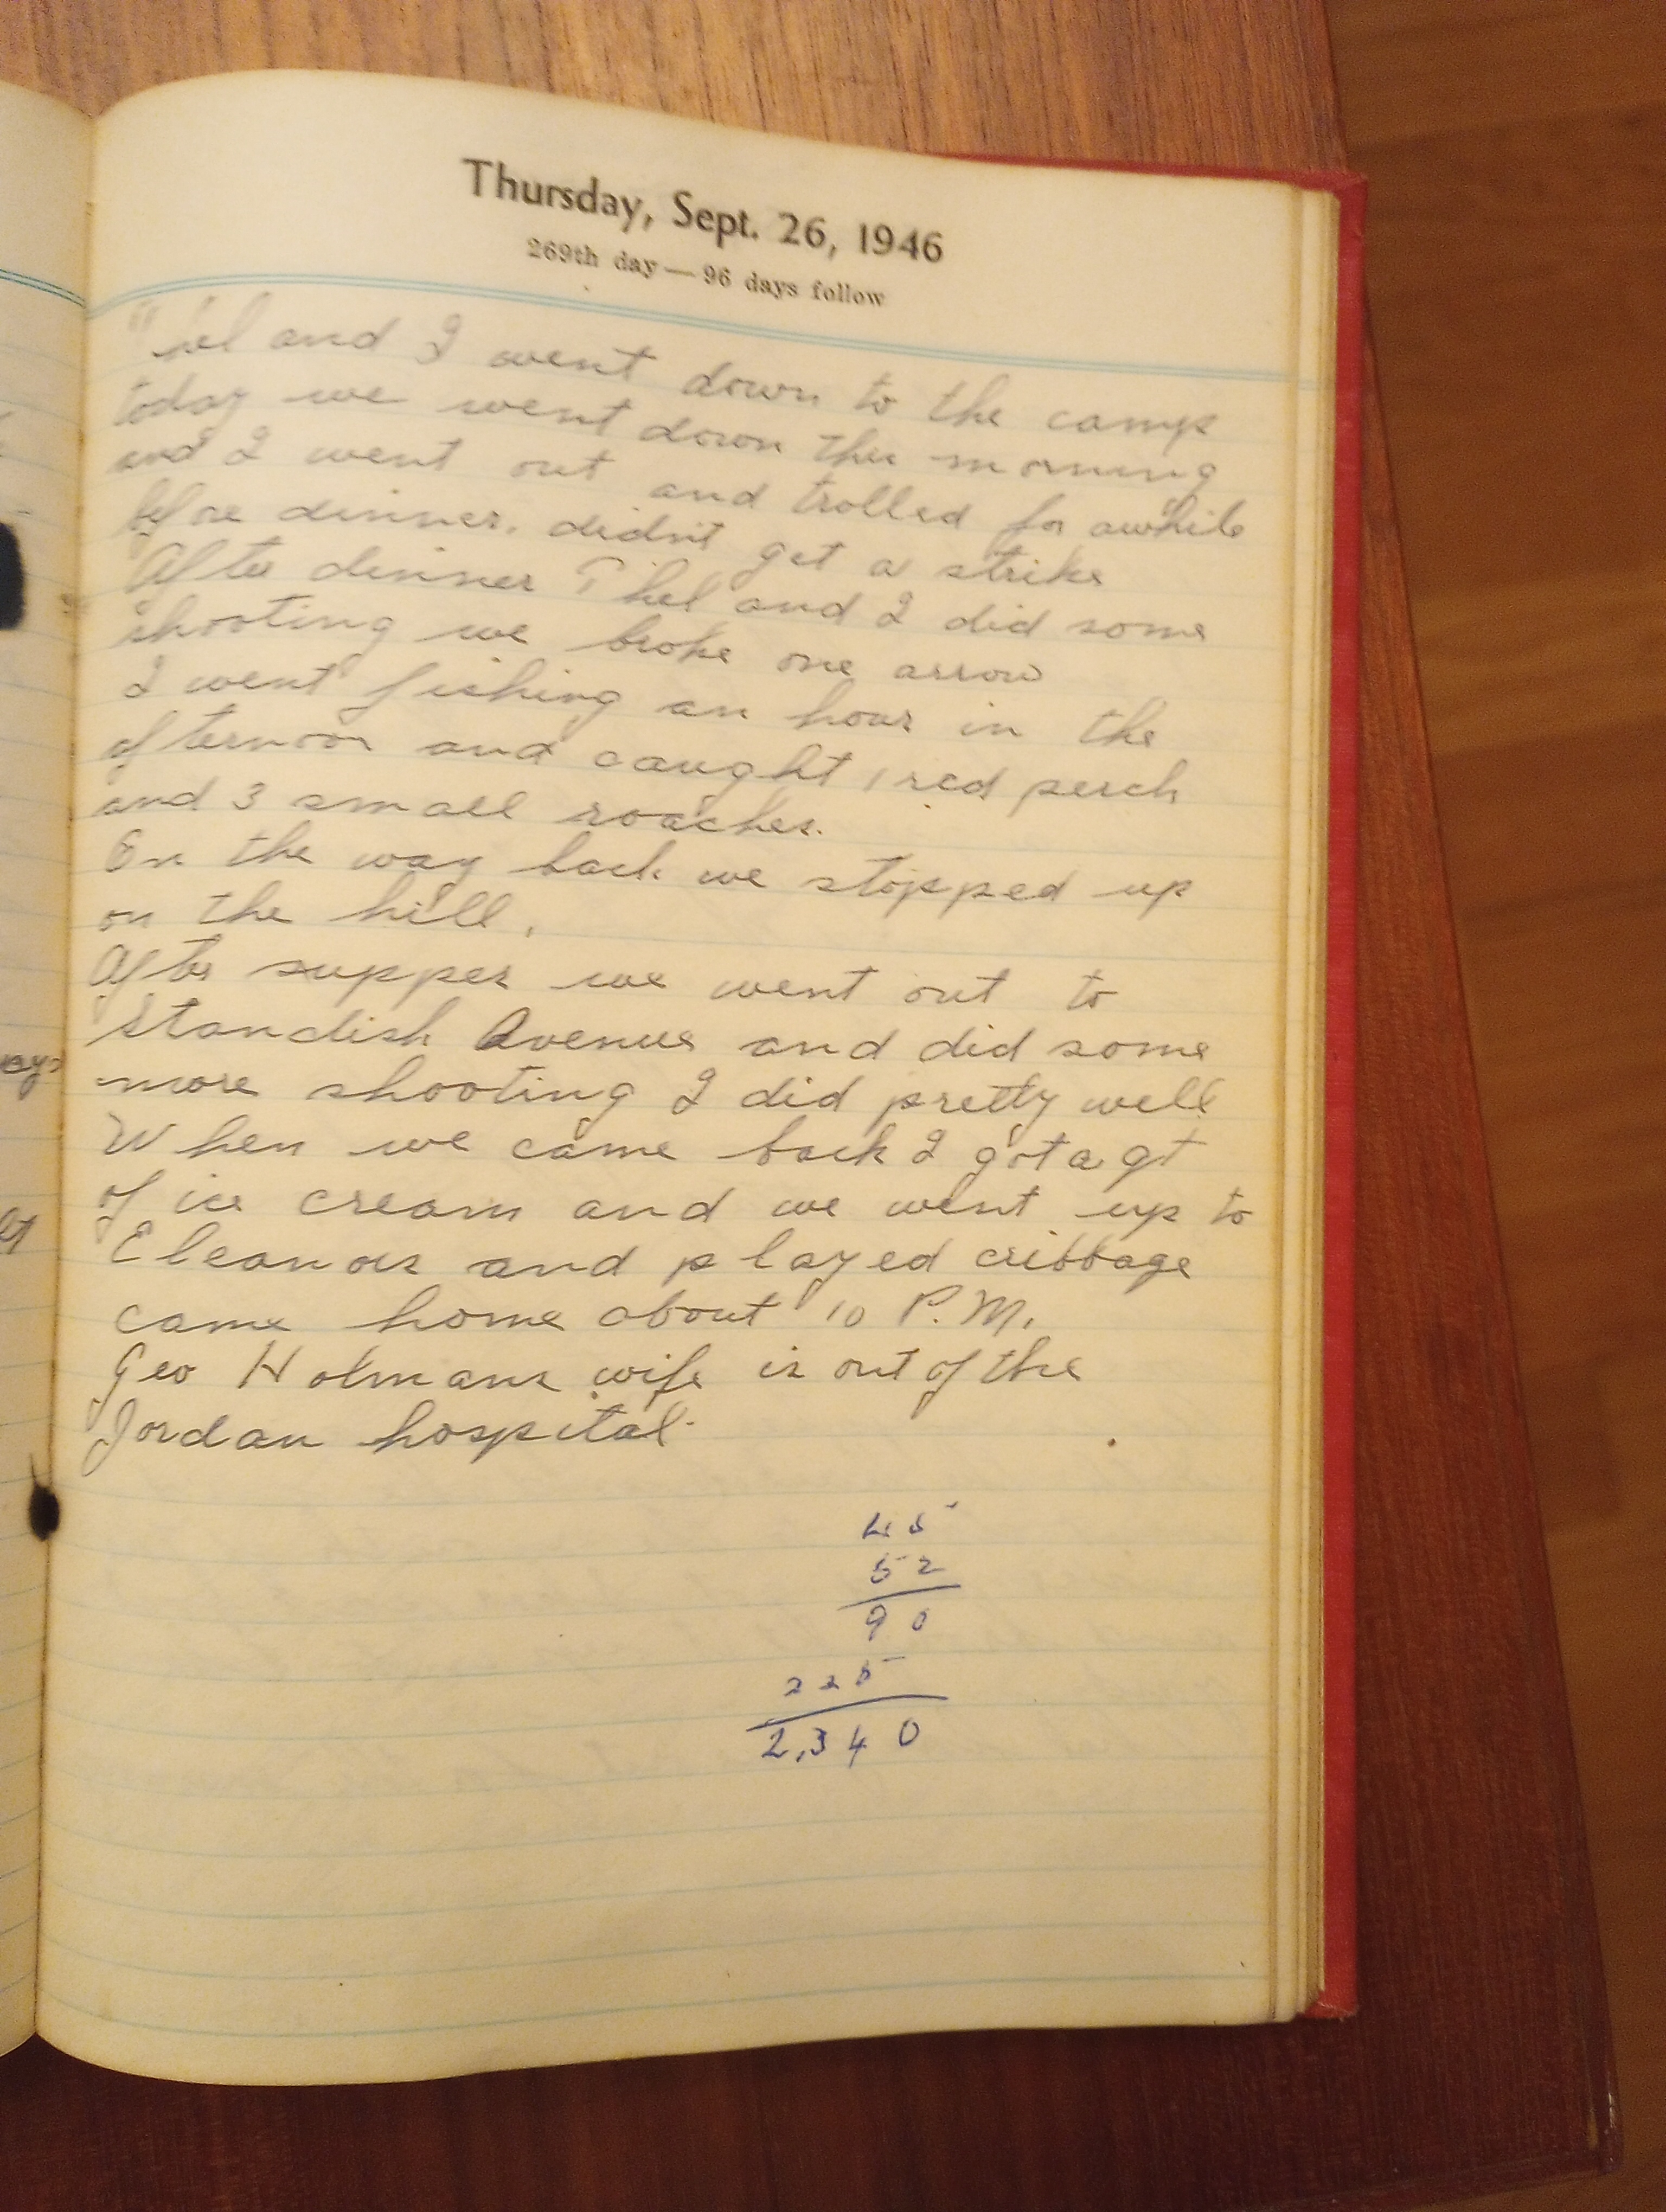 Thursday, Sept. 26, 1946
269th day — 96 days follow
and I went down to the camp
today we went down this morning
and I went out and trolled for awhile
before dinner. didn't get a strike
After dinner Phel and I did some
shooting we broke one arrow
I went fishing an hour in the
afternoon and caught 1 red perch
and 3 small roaches.
On the way back we stopped up
on the hill.
After supper we went out to
Standish Avenue and did some
more shooting I did pretty well
When we came back I got a qt
of ice cream and we went up to
Eleanors and played cribbage
came home about 10 P.M.
Geo Holmans wife is out of the
Jordan hospital.
45
52
90
225
2,340